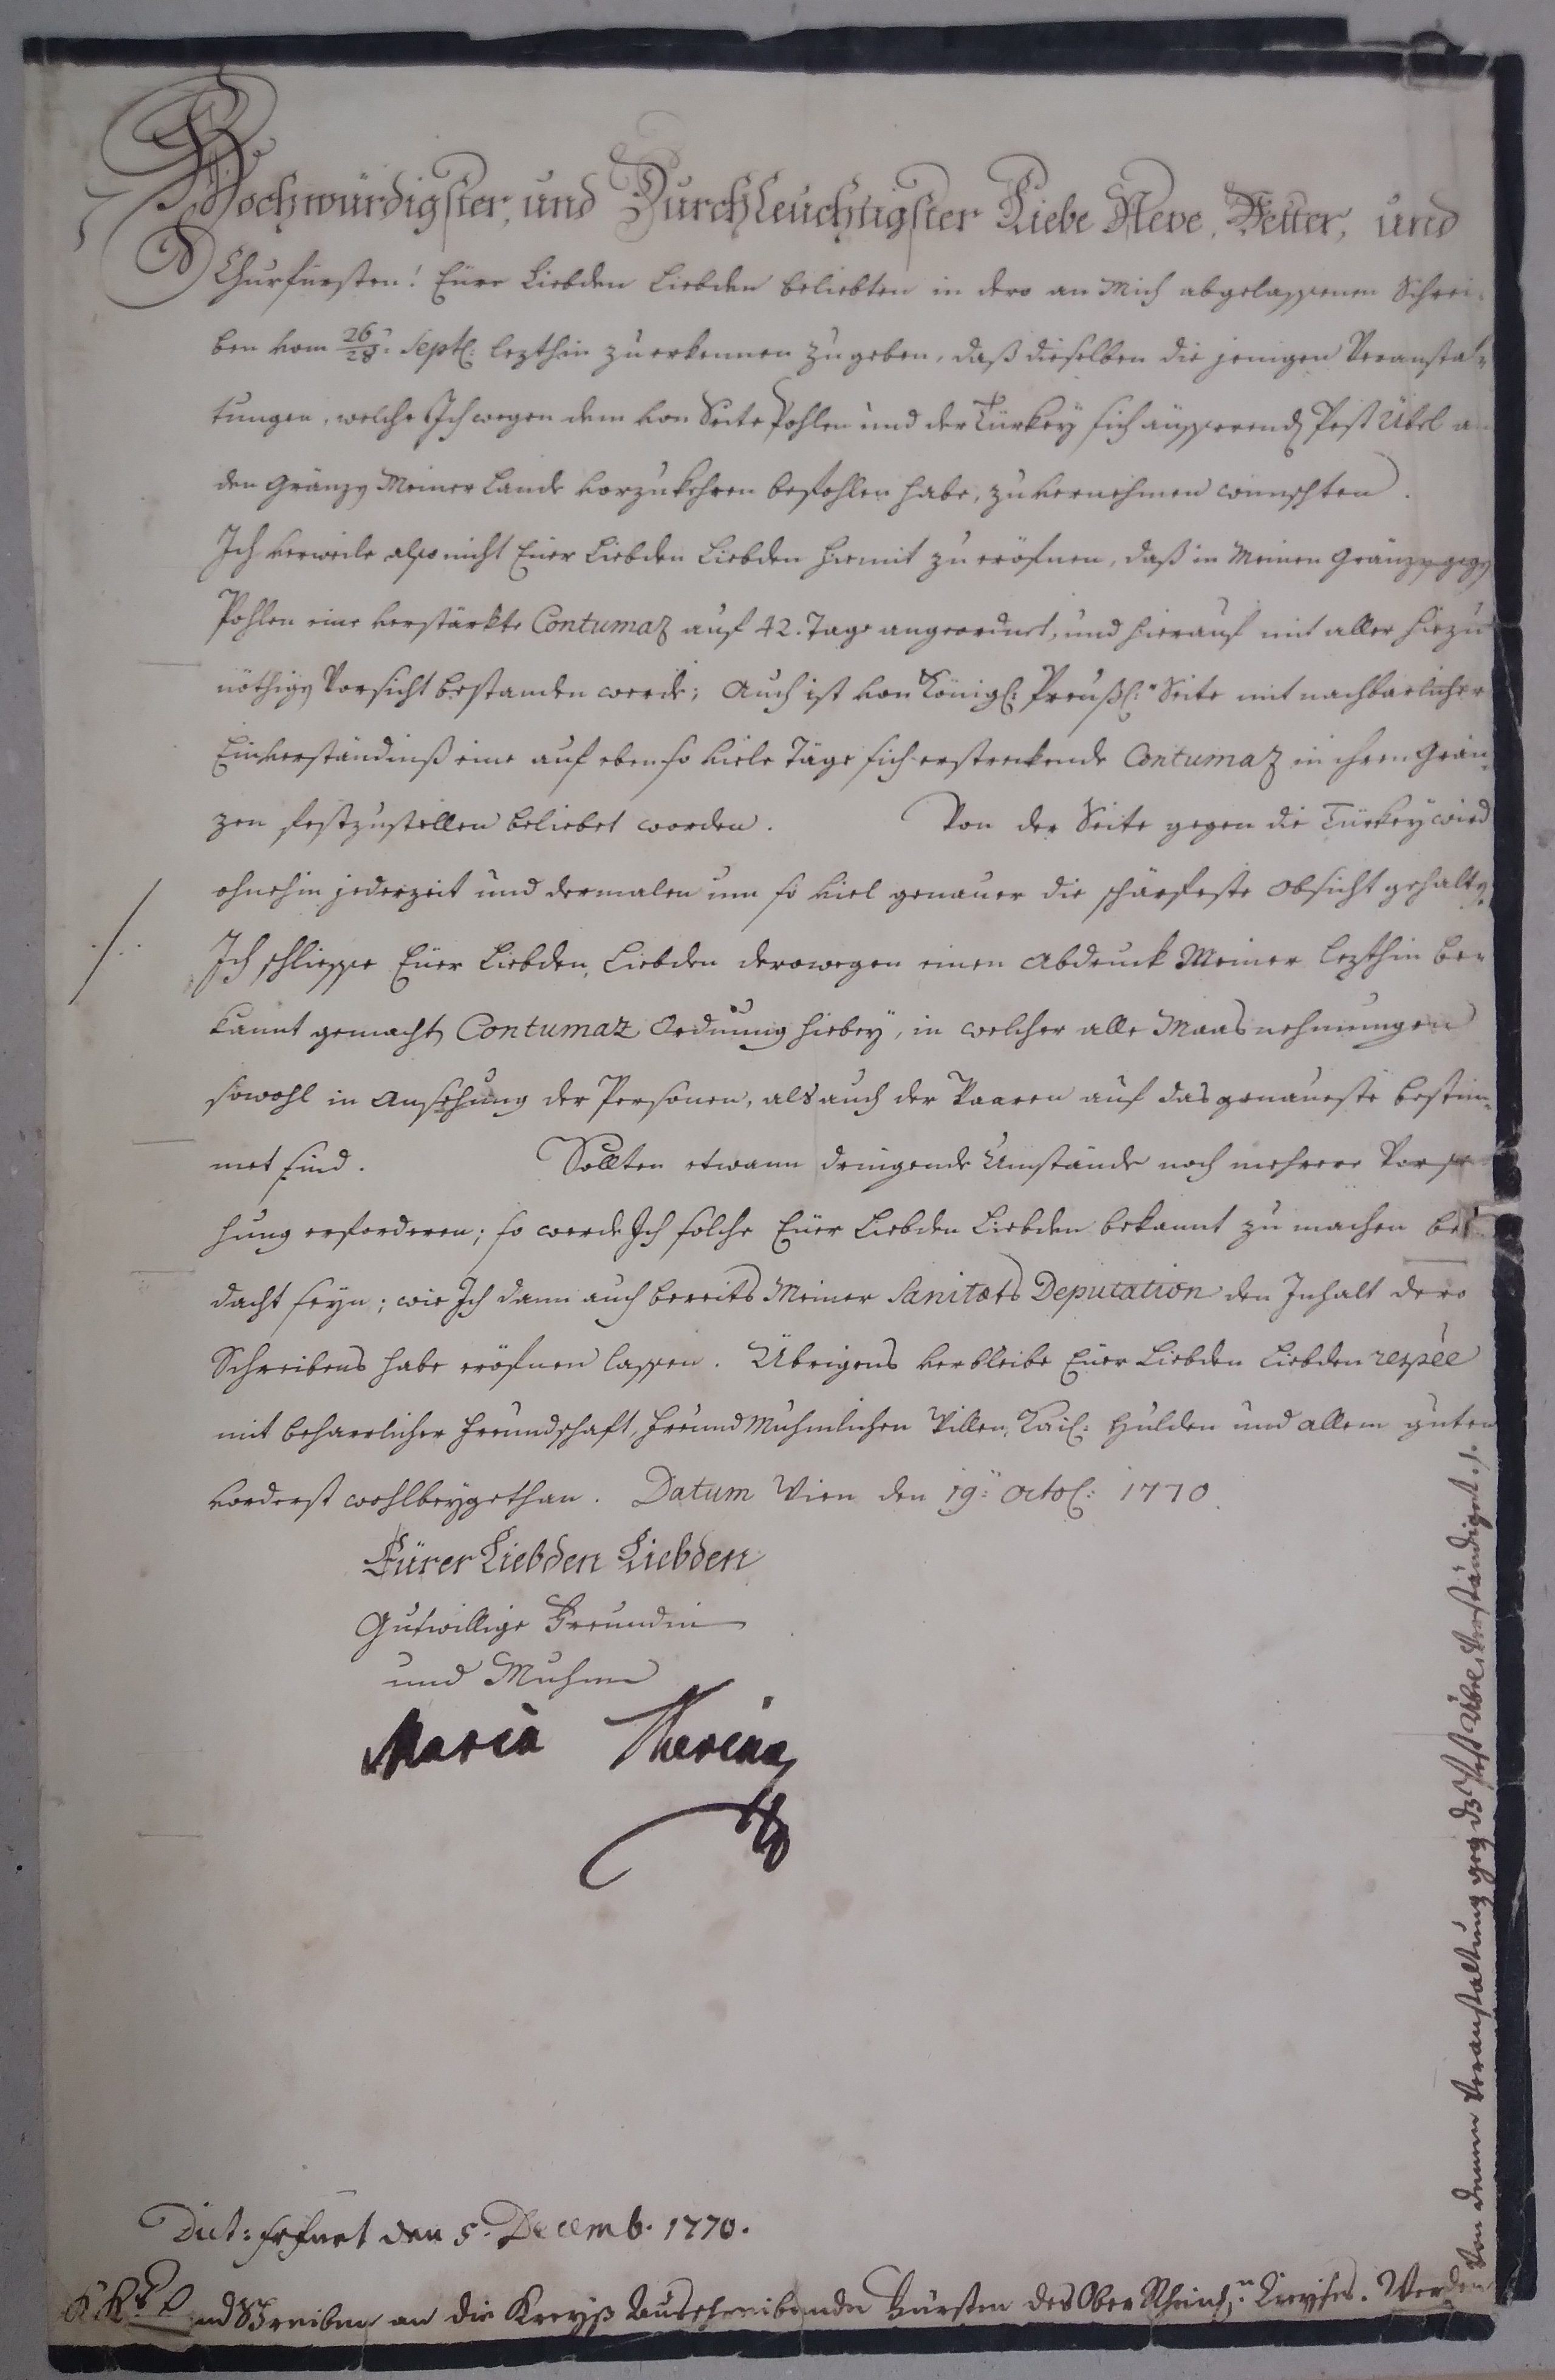 Hochwürdigster, und Durchleuchtigster Liebe Neve, Vetter, und
Churfürsten! Eüre Liebden Liebden beliebten in dero an Mich abgelassenen Schrei-
ben vom 26/28: Septl: lezthin zu erkennen zu geben, daß dieselben die jenigen Veranstal-
tungen, welche Ich wegen dem von Seite Pohlen und der Türkey sich äusserend Pest Übel an
den Gränzen Meiner Lande vorzukehren befohlen habe, zu vernehmen wunschten.
Ich verweile also nicht Eüer Liebden Liebden hiemit zu eröfnen, daß in Meinen Gränzen gegen
Pohlen eine verstärkte Contumaz auf 42. Tage angeordnet, und hierauf mit aller hiezu
nöthigen Vorsicht bestanden werde; Auch ist von Königl: Preußl: Seite mit nachbarlicher
Einverständniß eine auf eben so viele Täge sich erstreckende Contumaz in ihren Grän-
zen festzustellen beliebet worden. Von der Seite gegen die Türkey wird
ohnehin jederzeit und dermalen um so viel genauer die schärfeste Obsicht gehalten.
./. Ich schliesse Eüer Liebden, Liebden derowegen einen Abdruck Meiner lezthin be-
kannt gemachten Contumaz Ordnung hiebey, in welcher alle Maasnehmungen
sowohl in Ansehung der Personen, als auch der Waaren auf das genaueste bestim-
met sind. Sollten etwann dringende Umstände noch mehrere Vorse-
hung erforderen; so werde Ich solche Eüer Liebden Liebden bekannt zu machen be-
dacht seyn; wie Ich dann auch bereits Meiner Sanitæts Deputation den Inhalt dero
Schreibens habe eröfnen lassen. Übrigens verbleibe Eüer Liebden Liebden respée
mit beharrlicher Freundschaft, Freund Muhmlichen Willen, Kaiß: Hulden und allem guten
vorderst wohlbeygethan. Datum Wien den 19: Octob: 1770.
Eürer Liebden Liebden
Gutwillige Freundin
und Muhme
Maria Theresia
Dict: Erfurt den 5. Decemb. 1770.
an die Kreyß Ausschreibende Fürsten des Ober Rheinisch. Kreyses. Werden
von denen Veranstaltung geg. dz Pest Übel verständiget ./.